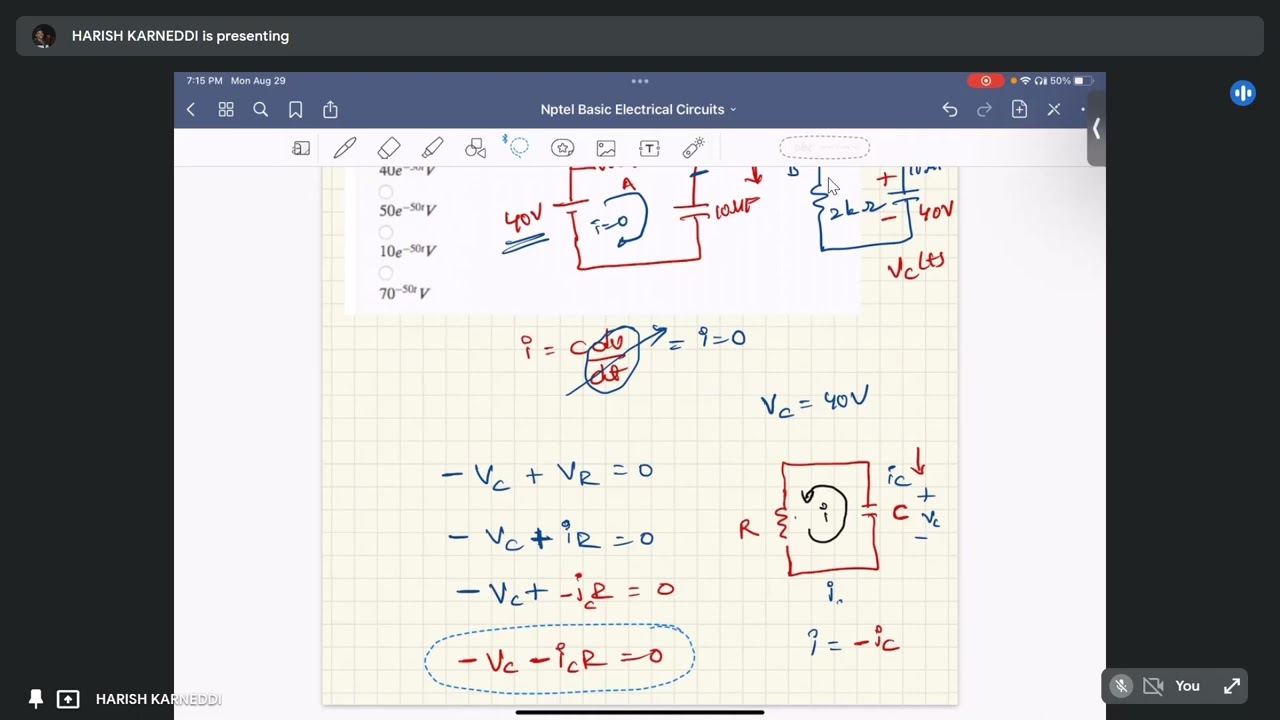 HARISH KARNEDDI is presenting
7:15 PM Mon Aug 29
50%
Nptel Basic Electrical Circuits
40e⁻⁵⁰ᵗV
50e⁻⁵⁰ᵗV
10e⁻⁵⁰ᵗV
70⁻⁵⁰ᵗV
A
40V
i=0
10μF
2kΩ
+
-
40V
Vc(t)
i = C dv/dt = i=0
Vc = 40V
- Vc + VR = 0
- Vc + iR = 0
- Vc + -icR = 0
- Vc - icR = 0
R
i
C
ic
+
Vc
-
i.
i = -ic
HARISH KARNEDDI
You